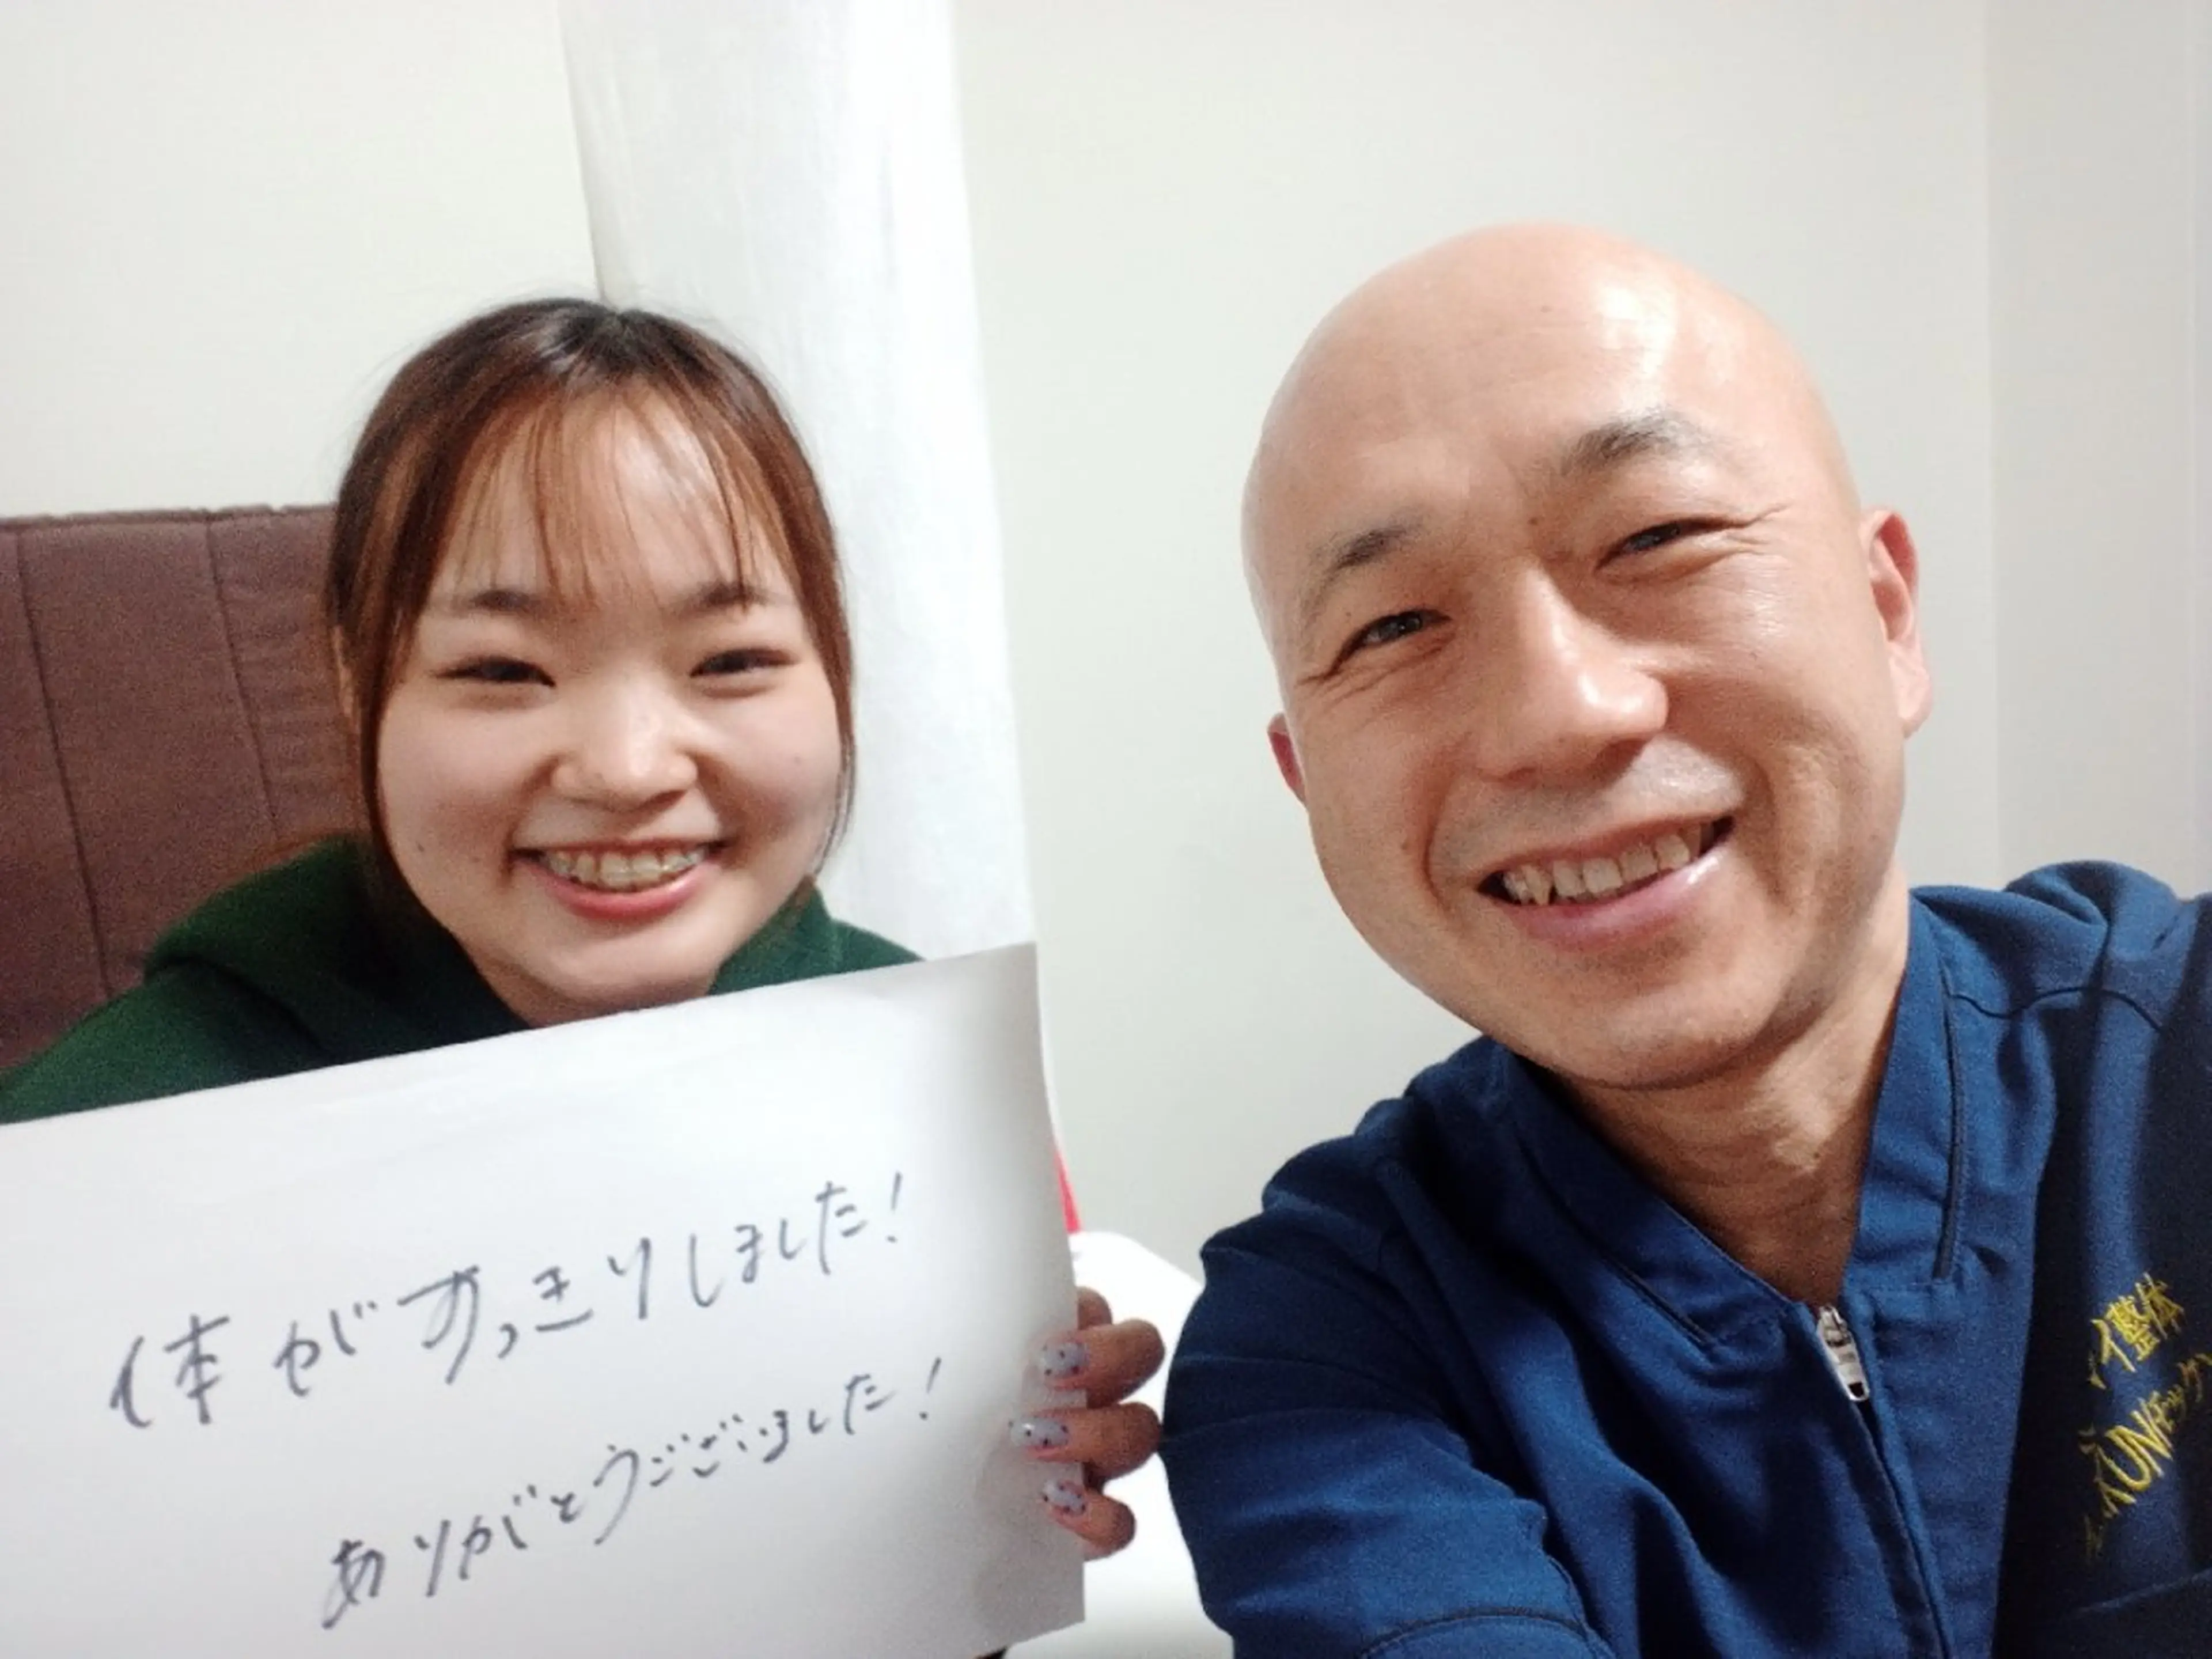 体がすっきりしました!
ありがとうございました!
整体